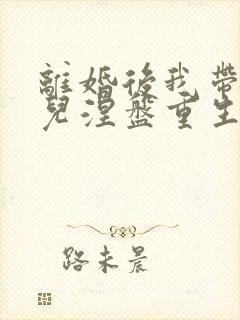 離婚後我帶
兒涅盤重生
路未晨